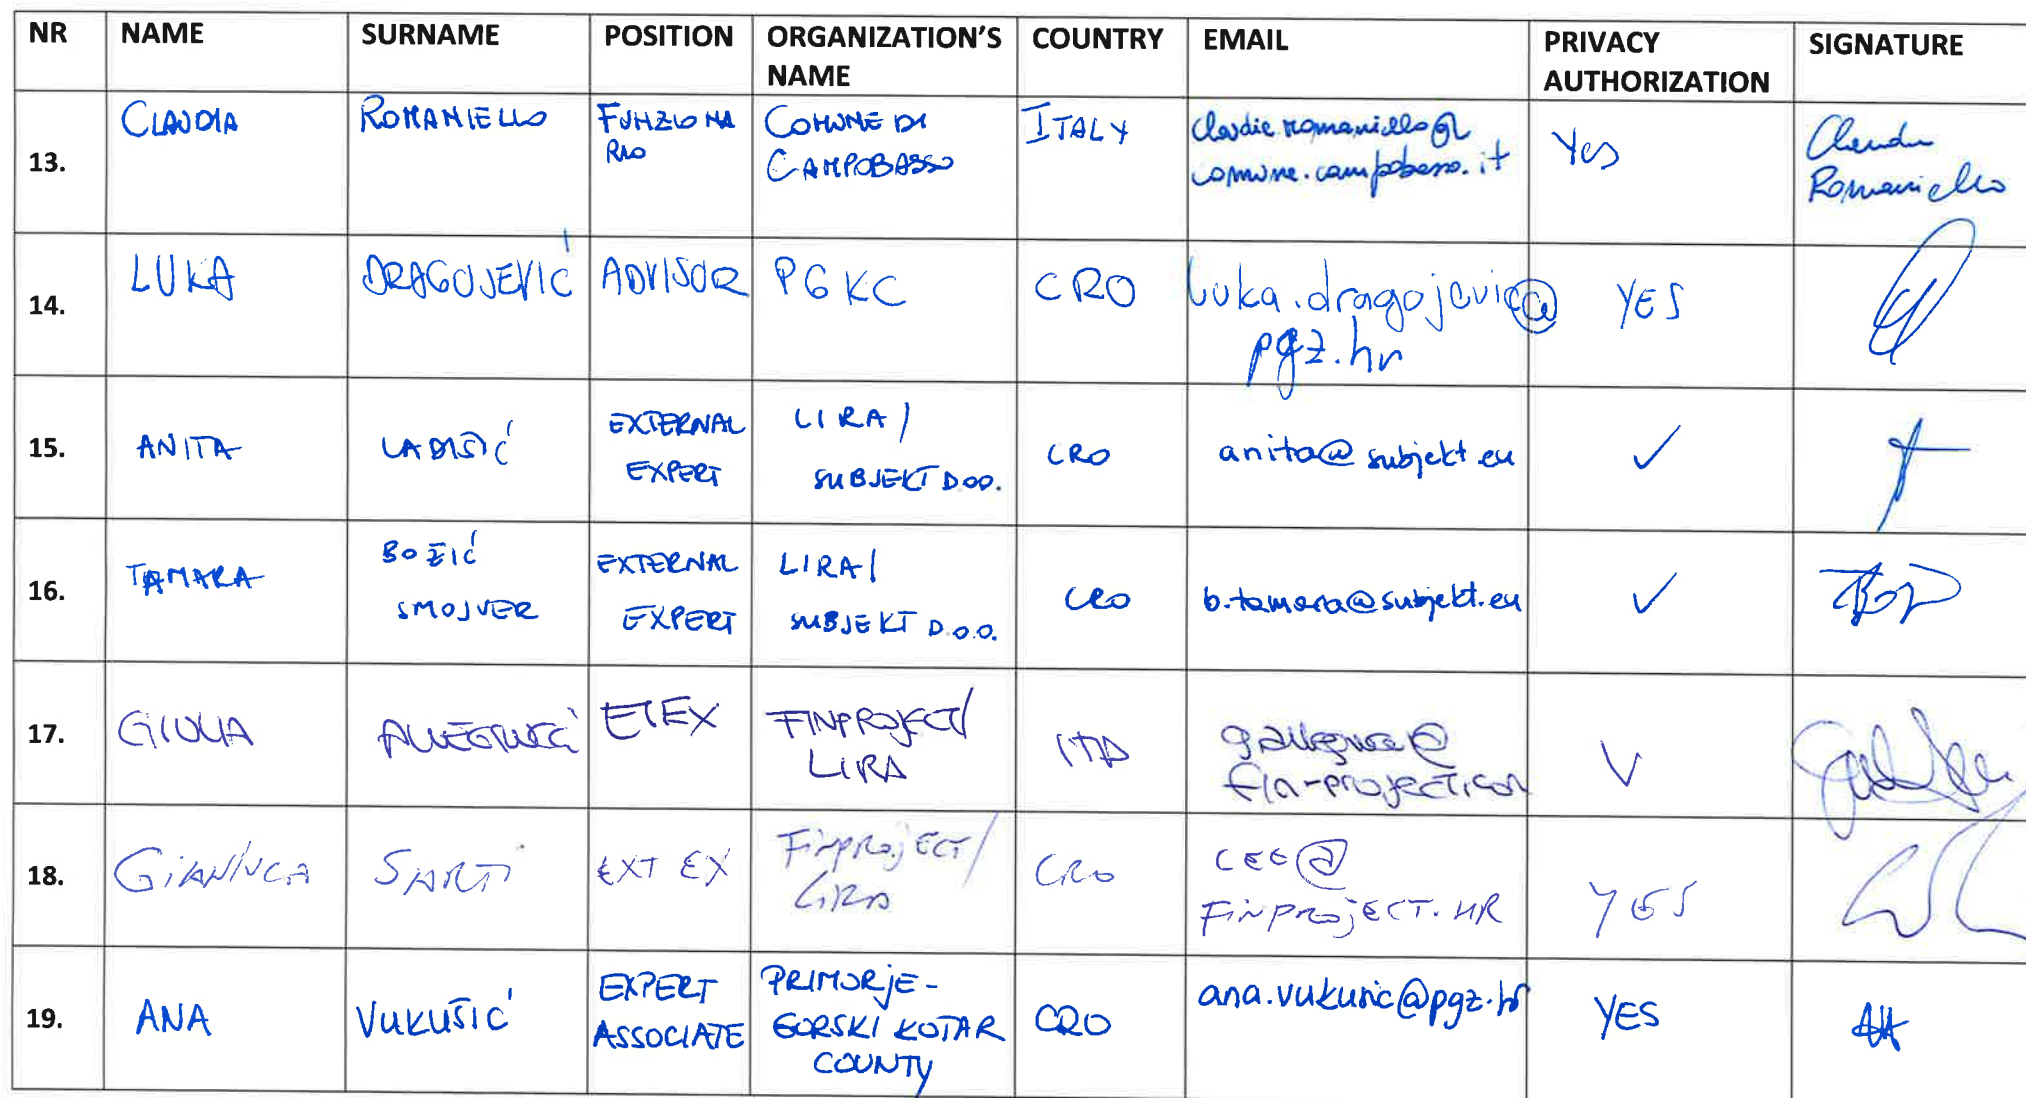 NR NAME SURNAME POSITION ORGANIZATION'S NAME COUNTRY EMAIL PRIVACY AUTHORIZATION SIGNATURE
13. CLAUDIA ROMANIELLO FUNZIONARIO COMUNE DI CAMPOBASSO ITALY claudia.romaniello@comune.campobasso.it Yes Claudia Romaniello
14. LUKA DRAGOJEVIĆ ADVISOR PGKC CRO luka.dragojevic@pgz.hr YES
15. ANITA LADIŠIĆ EXTERNAL EXPERT LIRA/ SUBJEKT D.O.O. CRO anita@subjekt.eu ✓
16. TAMARA BOŽIĆ SMOJVER EXTERNAL EXPERT LIRA/ SUBJEKT D.O.O. CRO b.tamara@subjekt.eu ✓
17. GIULIA ALLEGRUCCI FINPROJECT/ LIRA ITA V
18. GIANLUCA SARTI EXT EX FINPROJECT/ LIRA CRO CEE@FINPROJECT.HR YES
19. ANA VUKUŠIĆ EXPERT ASSOCIATE PRIMORJE-GORSKI KOTAR COUNTY CRO ana.vukusic@pgz.hr YES